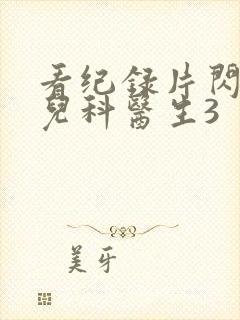 看纪录片闪
兒科醫生3
美牙